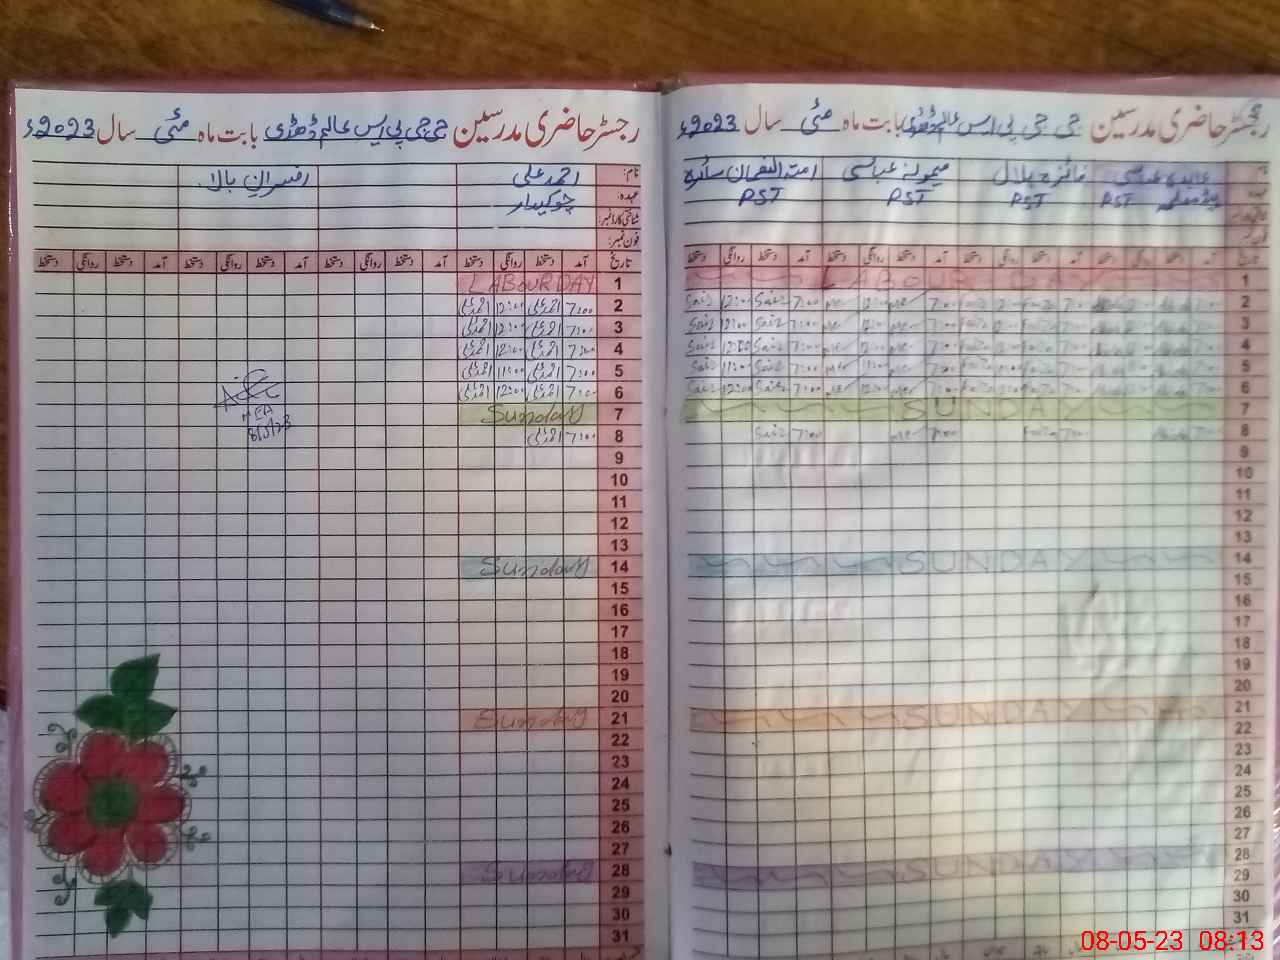 رجسٹر حاضری مدرسین جی جی پی ایس عالم ڈھڈی بابت ماہ مئی سال 2023ء
نام: عابدہ عباسی فائزہ بلال میمونہ عباسی
PST PST PST PST
تاریخ آمد دستخط روانگی دستخط آمد دستخط روانگی دستخط آمد دستخط روانگی دستخط آمد دستخط روانگی دستخط
1 LABOUR DAY
2 7:00 12:00 7:00 Faiza 12:00 Faiza 7:00 me 12:00 me 7:00 Saiz 12:00 Saiz
3 7:00 12:00 7:00 Faiza 12:00 Faiza 7:00 me 12:00 me 7:00 Saiz 12:00 Saiz
4 7:00 12:00 7:00 Faiza 12:00 Faiza 7:00 me 12:00 me 7:00 Saiz 12:00 Saiz
5 7:00 11:00 7:00 Faiza 11:00 Faiza 7:00 me 11:00 me 7:00 Saiz 11:00 Saiz
6 7:00 12:00 7:00 Faiza 12:00 Faiza 7:00 me 12:00 me 7:00 Saiz 12:00 Saiz
7 SUNDAY
8 7:00 7:00 Faiza 7:00 me 7:00 Saiz
9
10
11
12
13
14 SUNDAY
15
16
17
18
19
20
21 SUNDAY
22
23
24
25
26
27
28 SUNDAY
29
30
31
رجسٹر حاضری مدرسین جی جی پی ایس عالم ڈھڈی بابت ماہ مئی سال 2023ء
نام: احمد علی افسران بالا
عہدہ: چوکیدار
شناختی کارڈ نمبر:
فون نمبر:
تاریخ آمد دستخط روانگی دستخط آمد دستخط روانگی دستخط آمد دستخط روانگی دستخط آمد دستخط روانگی دستخط
1 LABOUR DAY
2 7:00 احمد علی 12:00 احمد علی
3 7:00 احمد علی 12:00 احمد علی
4 7:00 احمد علی 12:00 احمد علی
5 7:00 احمد علی 11:00 احمد علی
6 7:00 احمد علی 12:00 احمد علی
7 Sunday
MEA
8 7:00 احمد علی
8/5/23
9
10
11
12
13
14 Sunday
15
16
17
18
19
20
21 Sunday
22
23
24
25
26
27
28 Sunday
29
30
31
08-05-23 08:13